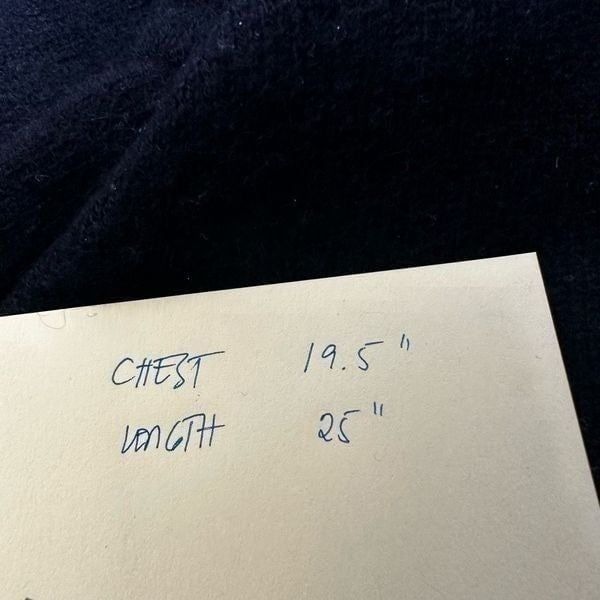 CHEST 19.5"
LENGTH 25"